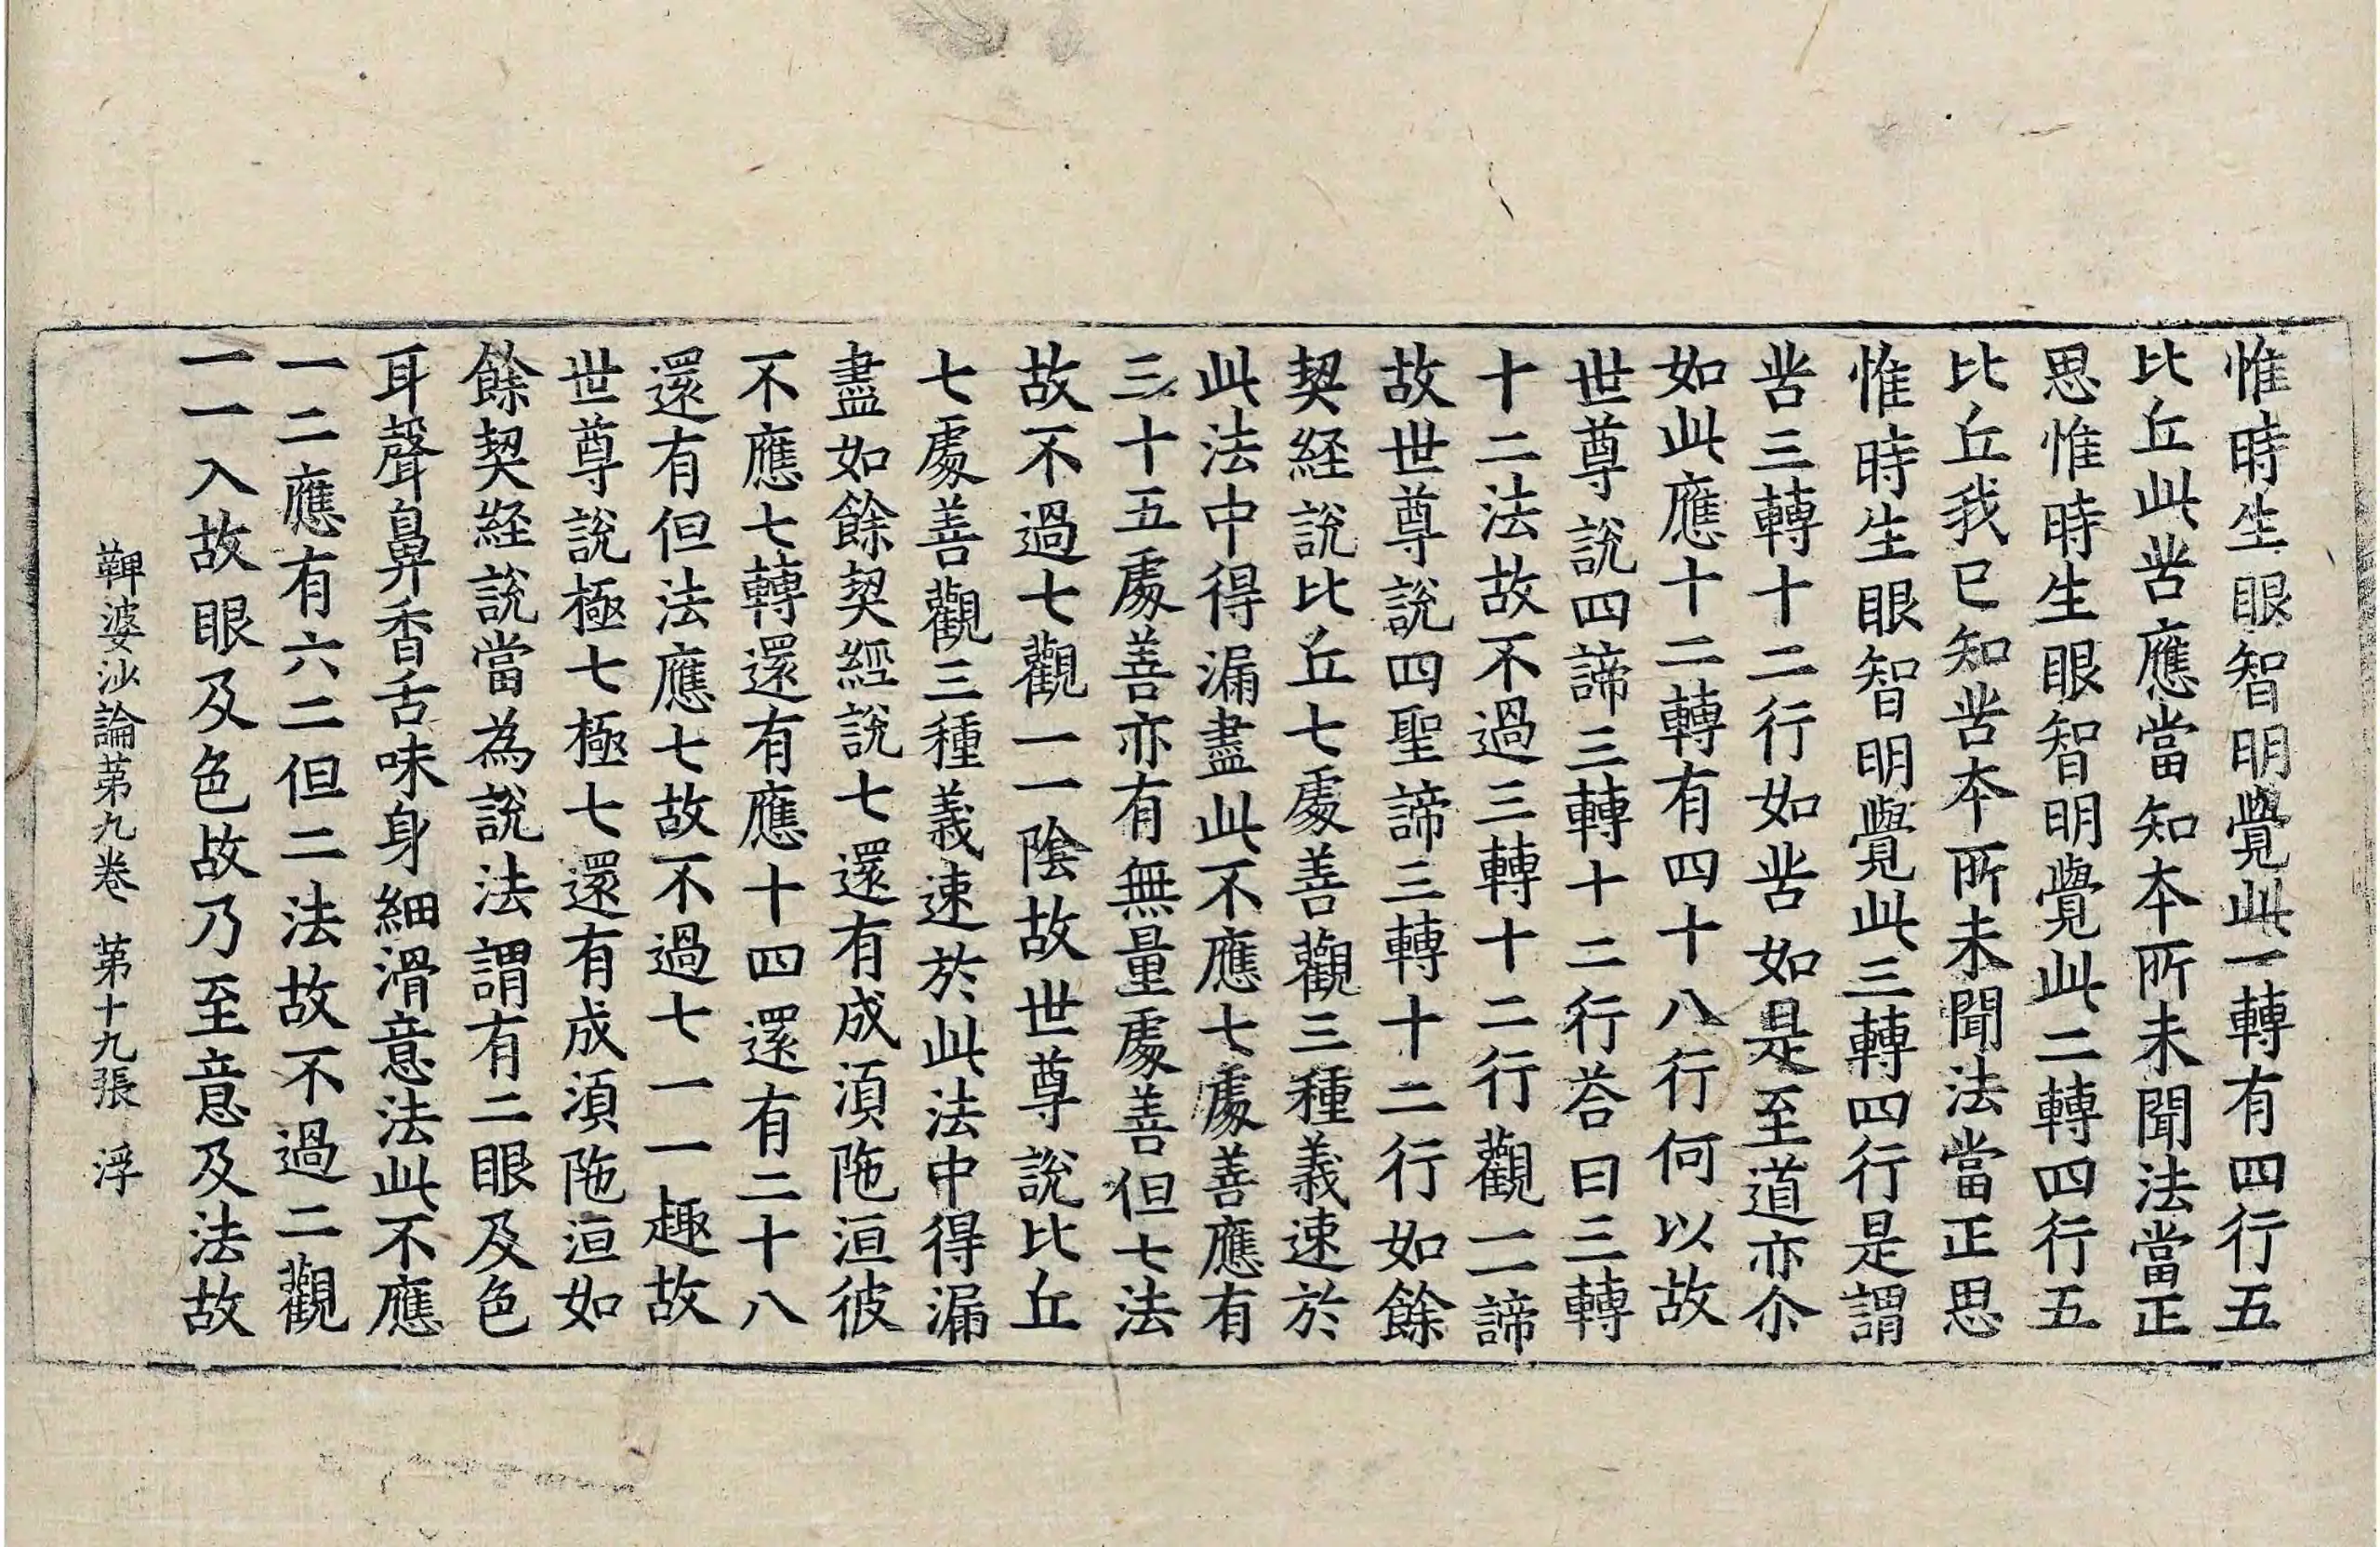 惟時生眼智明覺此一轉有四行五
比丘此苦應當知本所未聞法當正
思惟時生眼智明覺此二轉四行五
比丘我已知苦本所未聞法當正思
惟時生眼智明覺此三轉四行是謂
苦三轉十二行如苦如是至道亦尒
如此應十二轉有四十八行何以故
世尊說四諦三轉十二行荅曰三轉
十二法故不過三轉十二行觀一一諦
故世尊說四聖諦三轉十二行如餘
契経說比丘七處善觀三種義速於
此法中得漏盡此不應七處善應有
三十五處善亦有無量處善但七法
故不過七觀一一陰故世尊說比丘
七處善觀三種義速於此法中得漏
盡如餘契經說七還有成湏陁洹彼
不應七轉還有應十四還有二十八
還有但法應七故不過七一一趣故
世尊說極七極七還有成湏陁洹如
餘契経說當為說法謂有二眼及色
耳聲鼻香舌味身細滑意法此不應
一二應有六二但二法故不過二觀
一一入故眼及色故乃至意及法故
鞞婆沙論第九卷 第十九張 浮